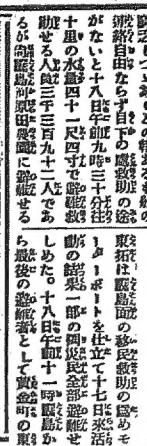 航路自由ならず目下の處救助の途
がないと十八日午前九時三十分往
十里の水量四十一尺四寸で避難救
助せる人員三千三百九十二人であ
るが島河原田農園に避難せる
東拓は島面の移民救助の爲めモ
ーターボートを仕立て十七日來活
動の結果一部の罹災民全部避難せ
しめた。十八日午前十一時島か
ら最後の避難者として黄金町の東